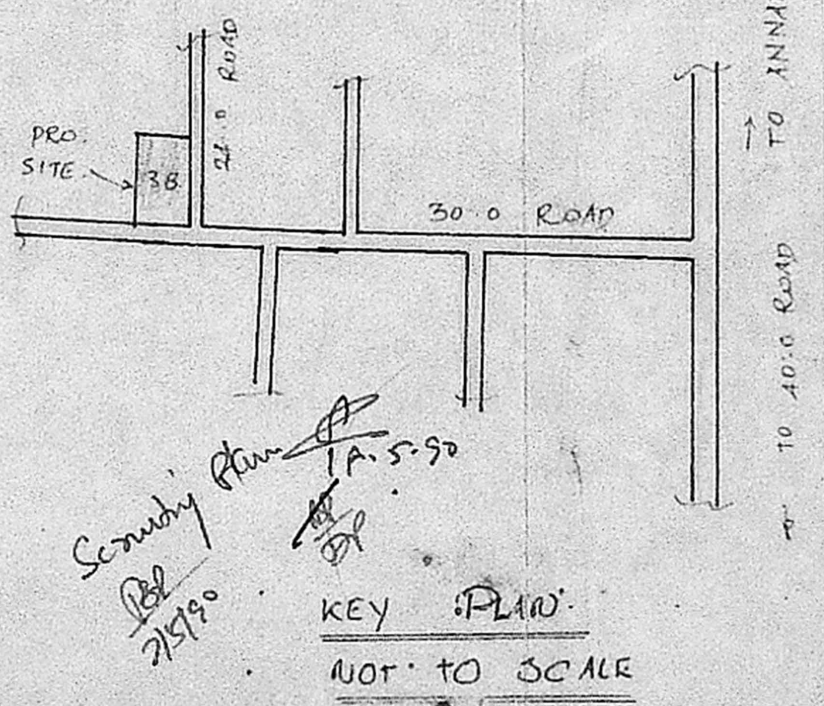 PRO.
SITE
38
ROAD
30.0 ROAD
→ TO ANNA
TO 40.0 ROAD
Scrutiny Plan
5.90
KEY PLAN
NOT TO SCALE